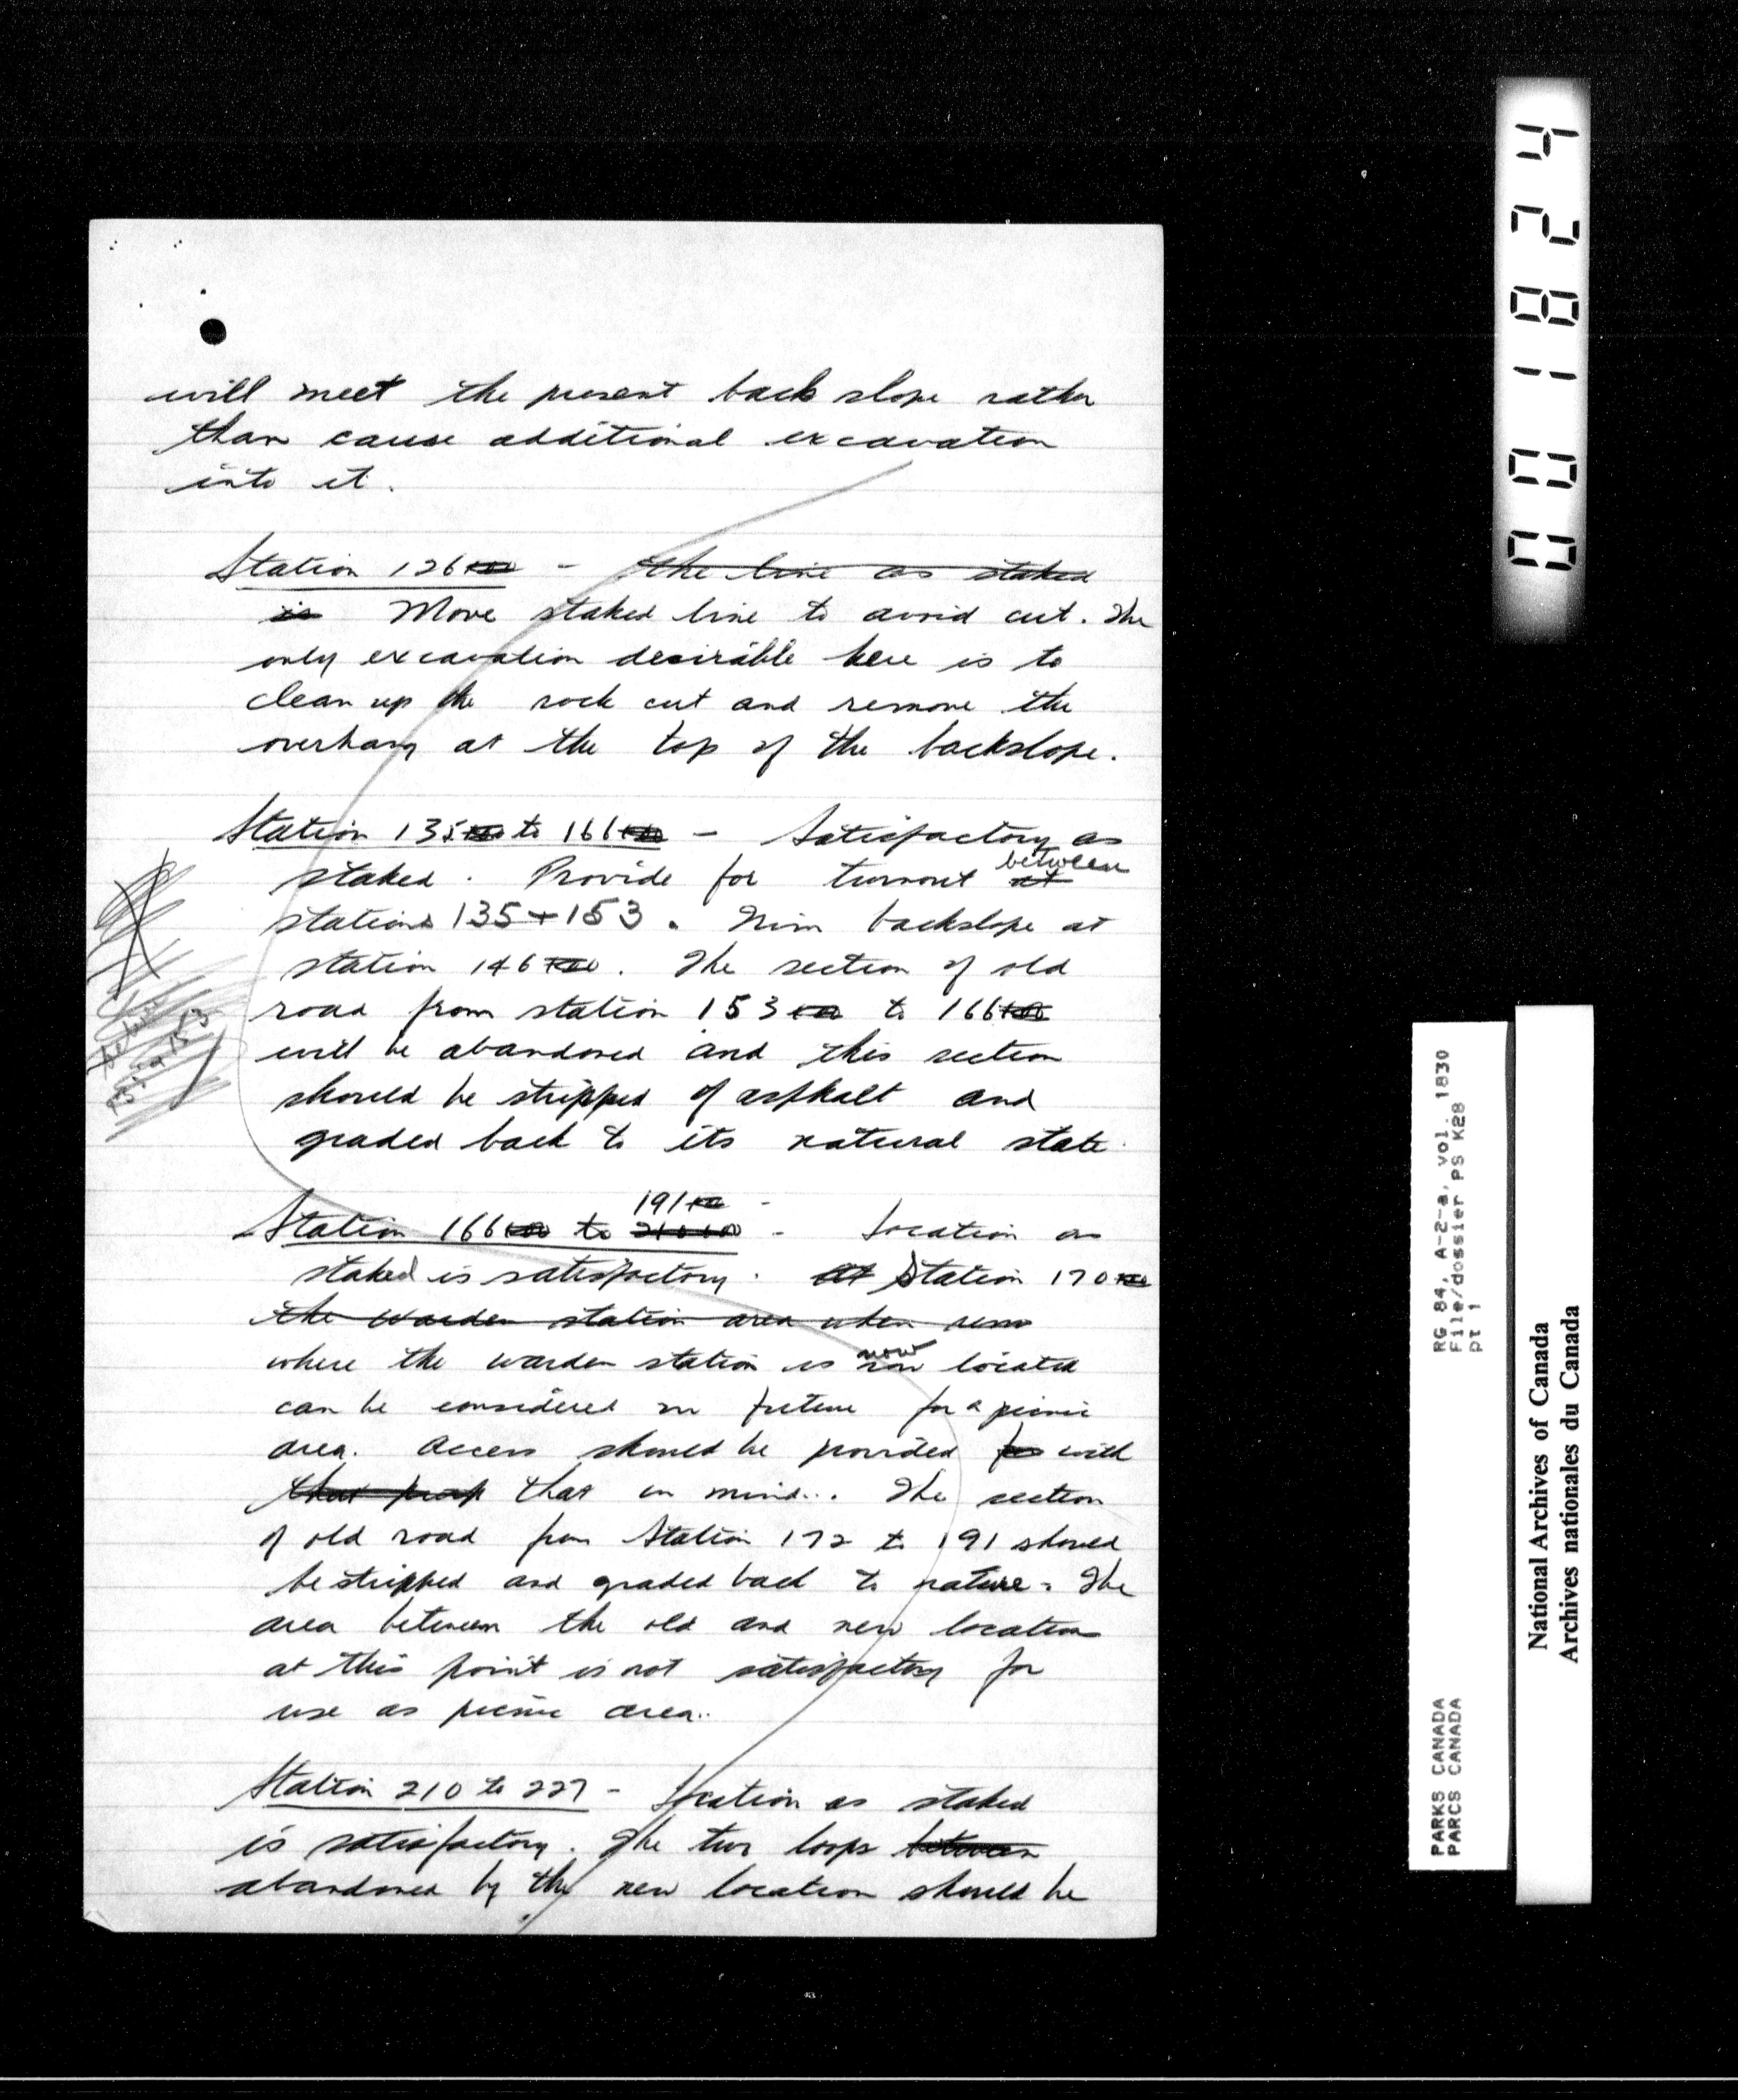 will meet the present back slope rather
than cause additional excavation
into it.
Station 126+00 - the line as staked
is Move staked line to avoid cut. The
only excavation desirable here is to
clean up the rock cut and remove the
overhang at the top of the backslope.
Station 135+00 to 166+00 - Satisfactory as
between
staked. Provide for turnout at
stations 135 + 153. Trim backslope at
station 146+00. The section of old
road from station 153+00 to 166+00
will be abandoned and this section
should be stripped of asphalt and
graded back to its natural state.
191+00 -
Station 166+00 to 210+00 - Location as
staked is satisfactory. At Station 170+00
the warden station area when
now
where the warden station is now located
can be considered in future for a picnic
area. Access should be provided for with
that that in mind. The section
of old road from Station 172 to 191 should
be stripped and graded back to nature. The
area between the old and new location
at this point is not satisfactory for
use as picnic area.
Station 210 to 227 - Location as staked
is satisfactory. The two loops between
abandoned by the new location should be
001824
RG 84, A-2-a, vol. 1830
File/dossier PS K28
pt 1
PARKS CANADA
PARCS CANADA
National Archives of Canada
Archives nationales du Canada